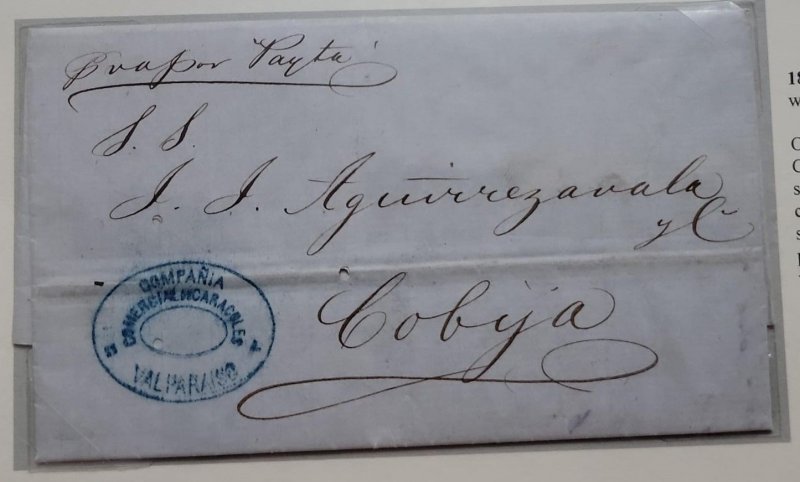 Pr vapor "Payta"
S. S.
J. J. Aguirrezavala
y Ca
Cobija
COMPAÑIA
COMERCIAL
CARACOLES
VALPARAISO
18
w
O
C
s
c
s